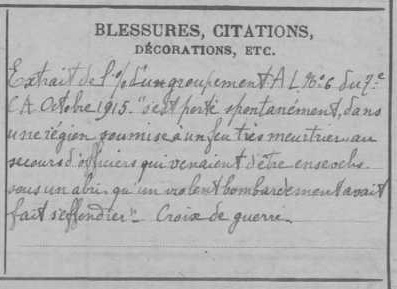 BLESSURES, CITATIONS,
DÉCORATIONS, ETC.
Extrait de l'% d'un groupement A L No 6 du 7e
C A Octobre 1915. "s'est porté spontanément, dans
une région soumise à un feu très meurtrier au
secours d'officiers qui venaient d'être ensevelis
sous un abri qu'un violent bombardement avait
fait s'effondrer" Croix de guerre.